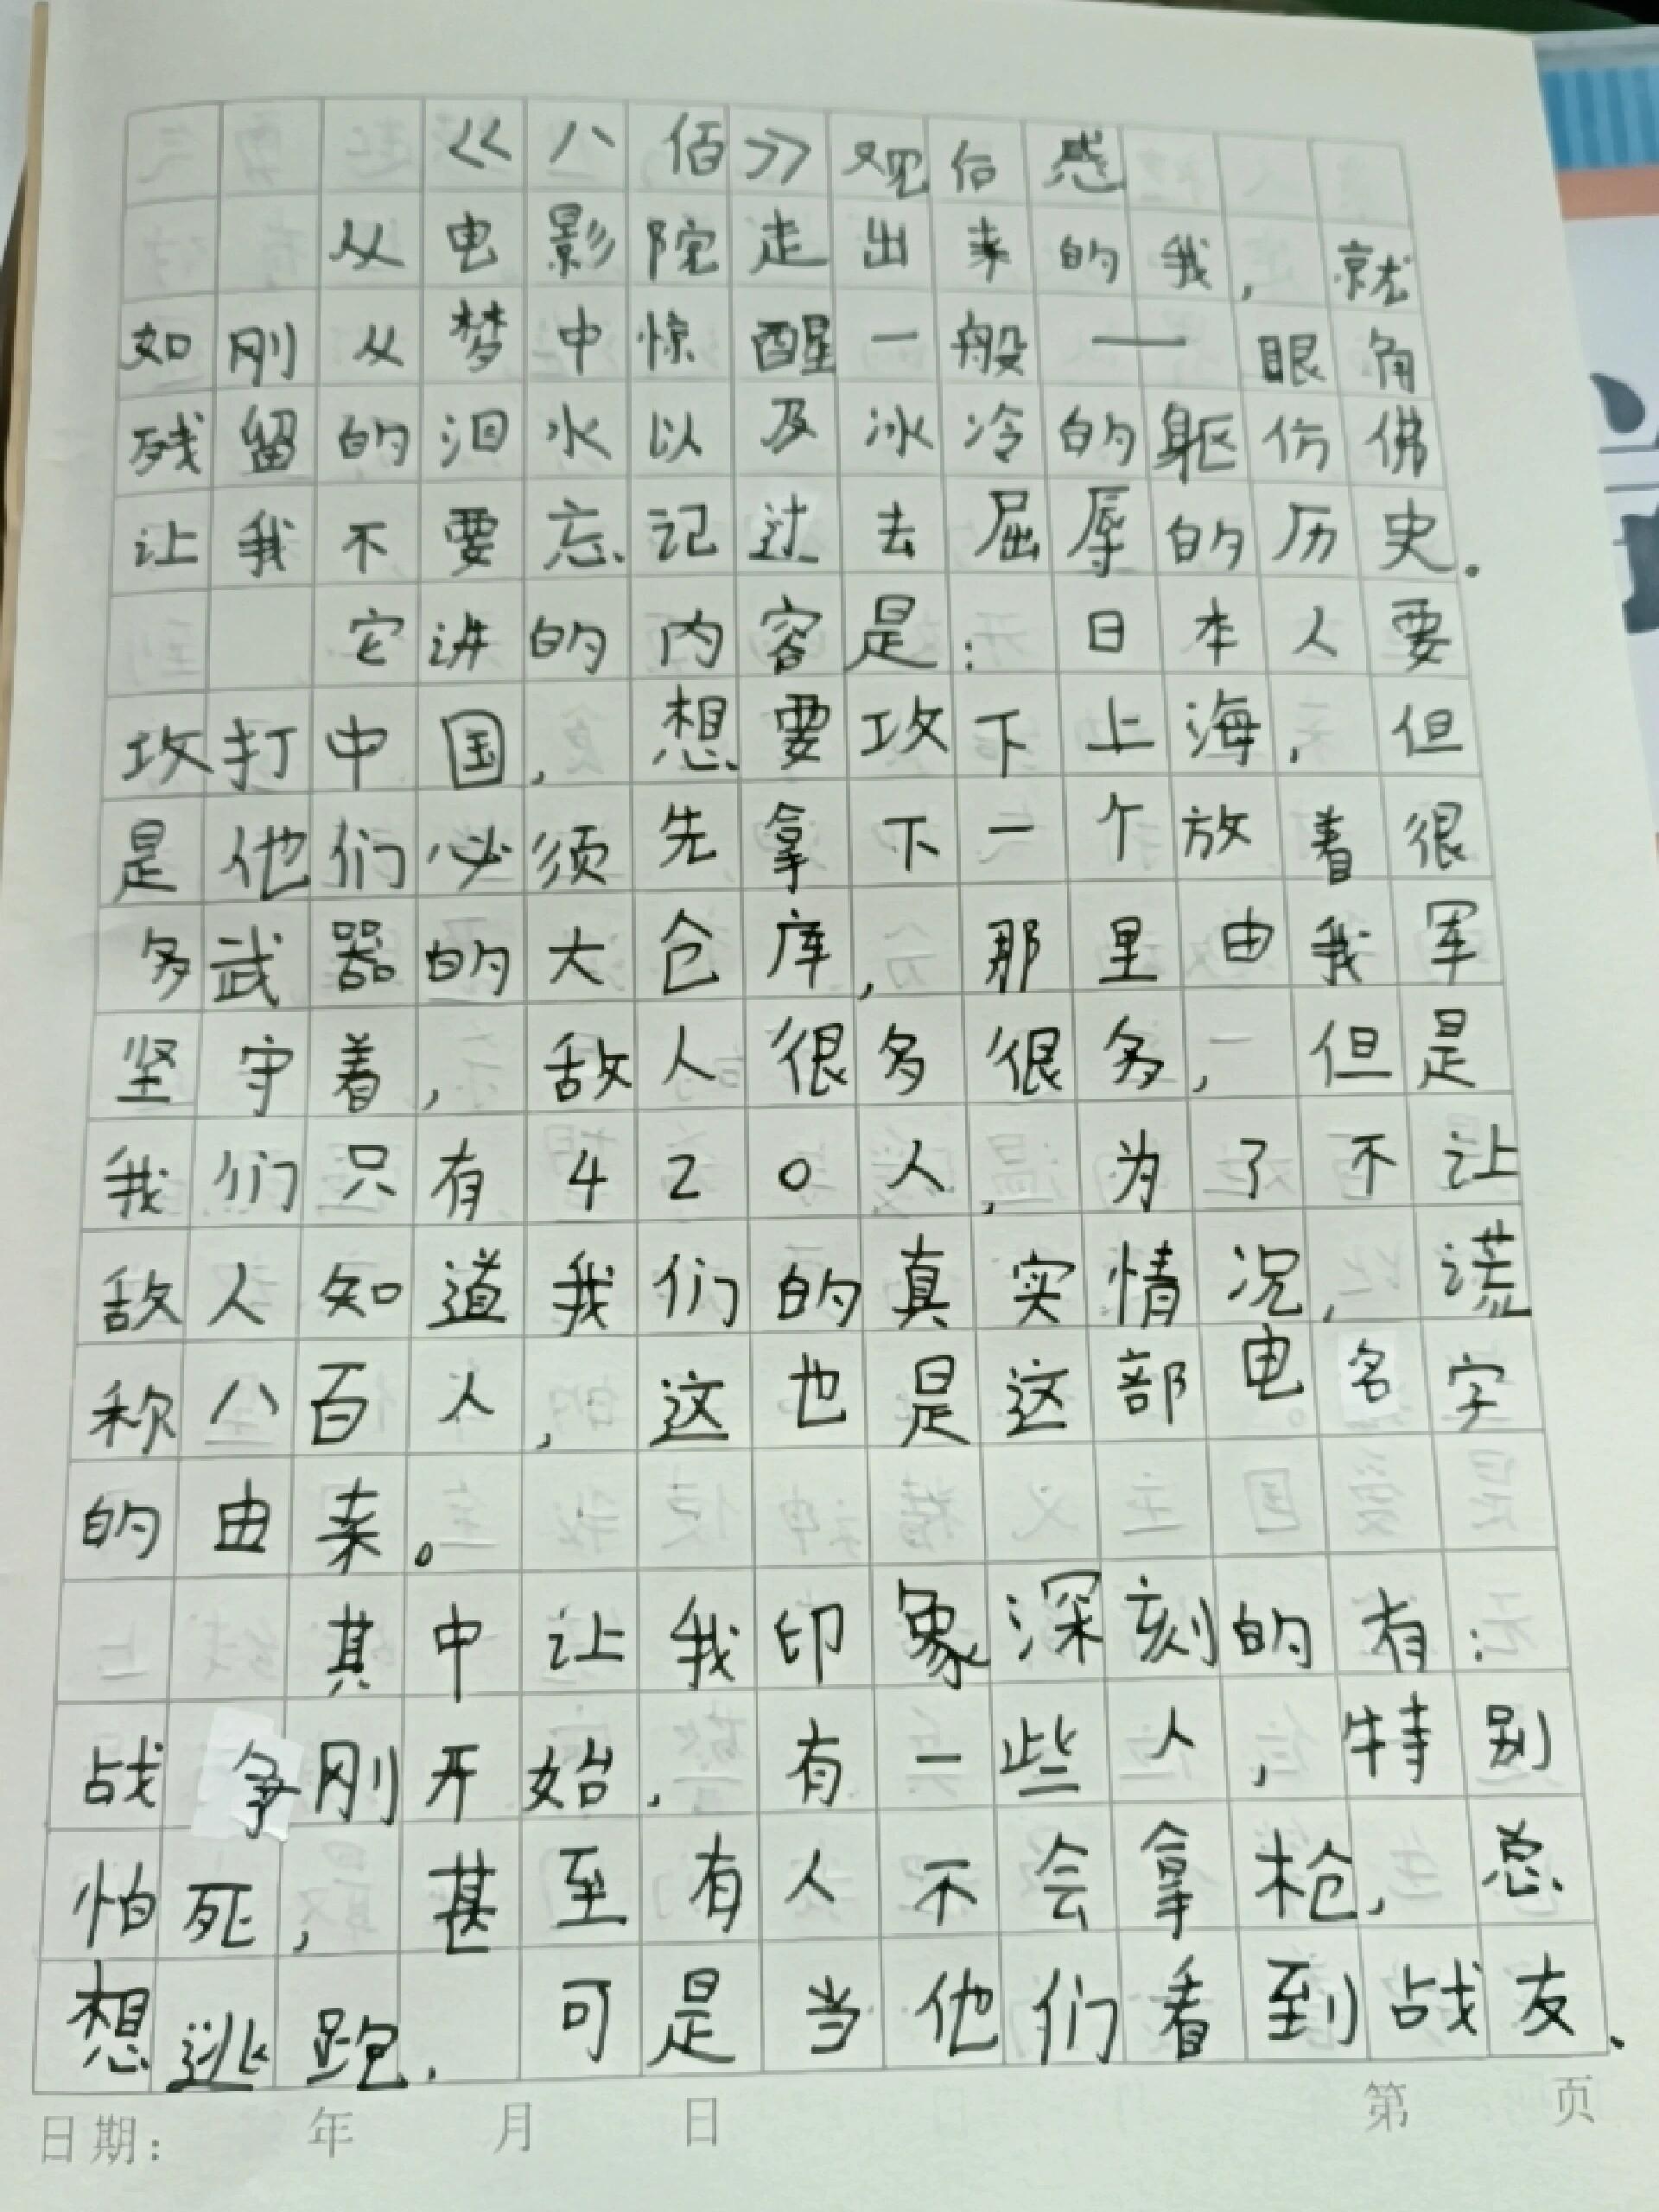 《八佰》观后感
从电影院走出来的我，就
如刚从梦中惊醒一般——眼角
残留的泪水以及冰冷的躯仿佛
让我不要忘记过去屈辱的历史.
它讲的内容是：日本人要
攻打中国，想要攻下上海，但
是他们必须先拿下一个放着很
多武器的大仓库，那里由我军
坚守着，敌人很多很多，但是
我们只有420人，为了不让
敌人知道我们的真实情况，谎
称八百人，这也是这部电名字
的由来。
其中让我印象深刻的有：
战争刚开始，有一些人，特别
怕死，甚至有人不会拿枪，总
想逃跑.可是当他们看到战友、
日期： 年 月 日 第 页